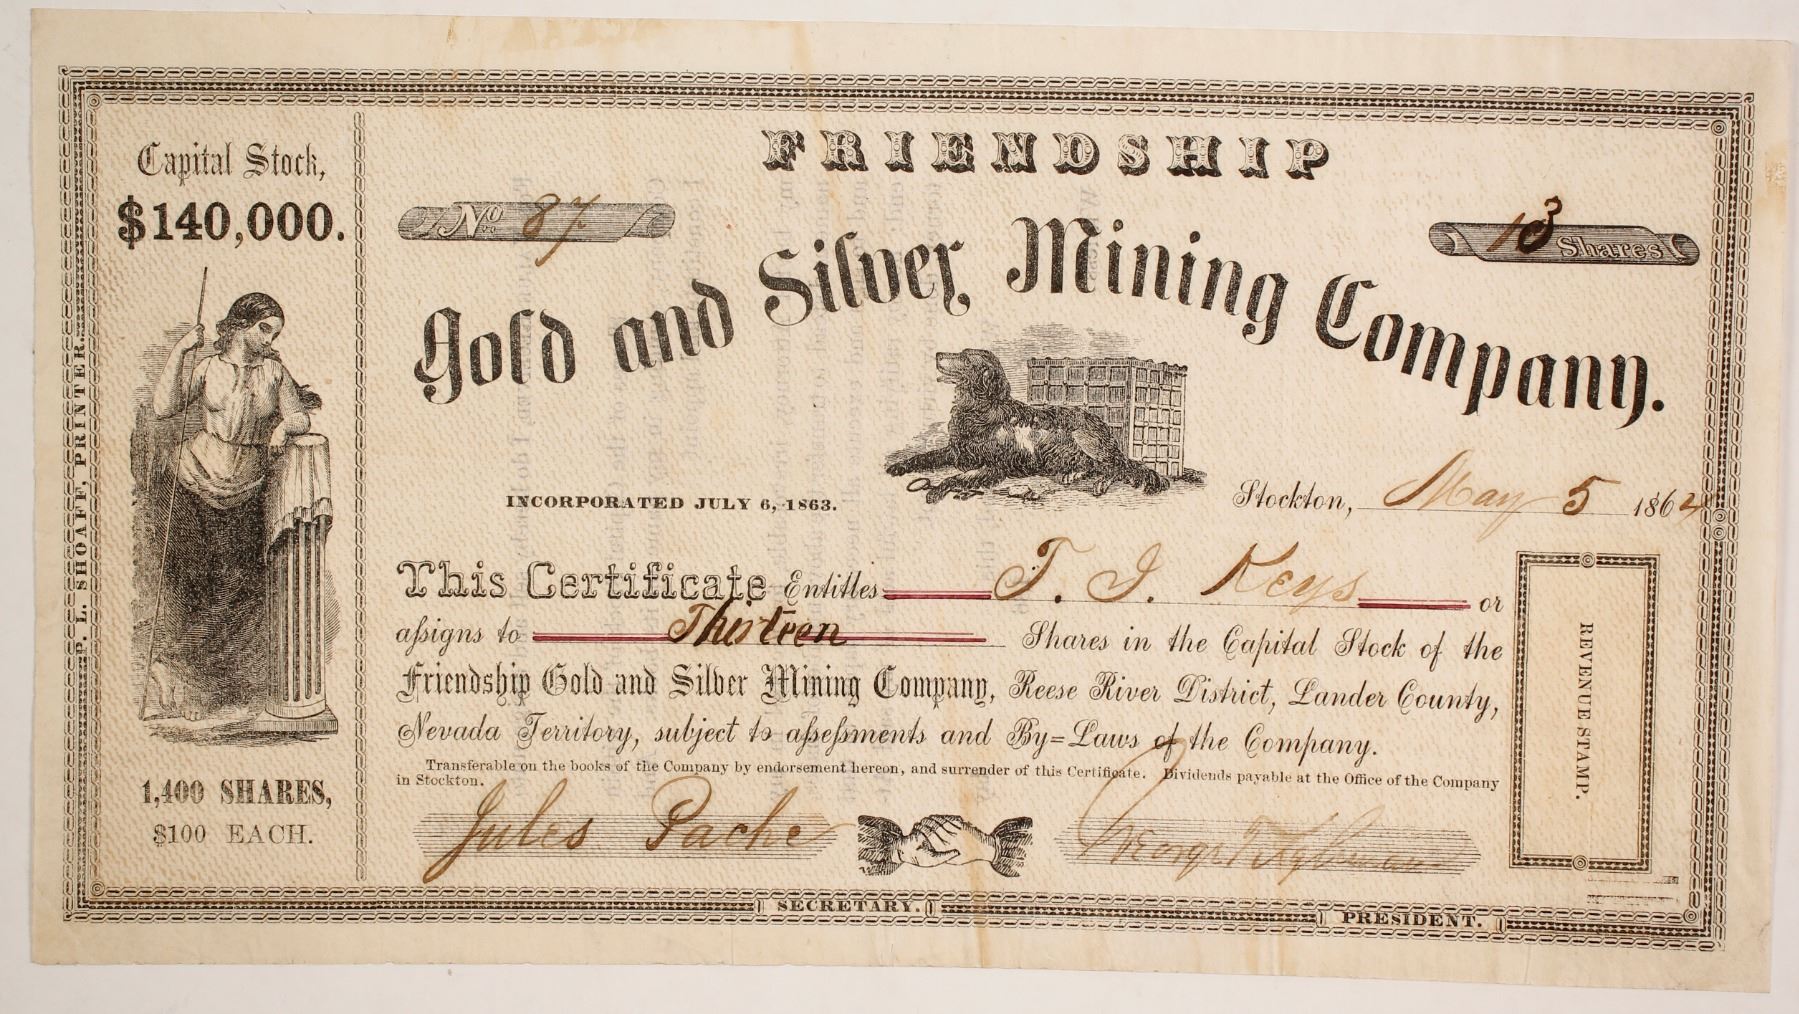 Capital Stock,
$140,000.
1,400 SHARES,
$100 EACH.
P. L. SHOAFF, PRINTER.
FRIENDSHIP
No. 87
13 Shares
Gold and Silver Mining Company.
INCORPORATED JULY 6, 1863.
Stockton, May 5 1864
This Certificate Entitles T. J. Keys or
assigns to Thirteen Shares in the Capital Stock of the
Friendship Gold and Silver Mining Company, Reese River District, Lander County,
Nevada Territory, subject to assessments and By=Laws of the Company.
Transferable on the books of the Company by endorsement hereon, and surrender of this Certificate. Dividends payable at the Office of the Company
in Stockton.
REVENUE STAMP.
Jules Pache
George
SECRETARY.
PRESIDENT.